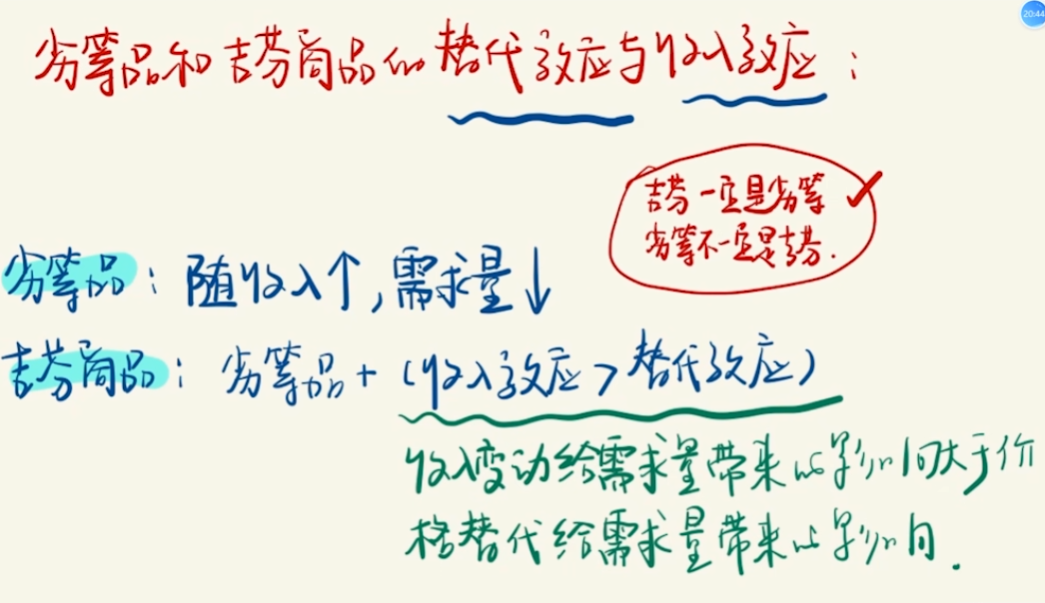 20:44
劣等品和吉芬商品的替代效应与收入效应：
吉芬一定是劣等✓
劣等不一定是吉芬.
劣等品：随收入↑,需求量↓
吉芬商品：劣等品+（收入效应>替代效应）
收入变动给需求量带来的影响大于价
格替代给需求量带来的影响.